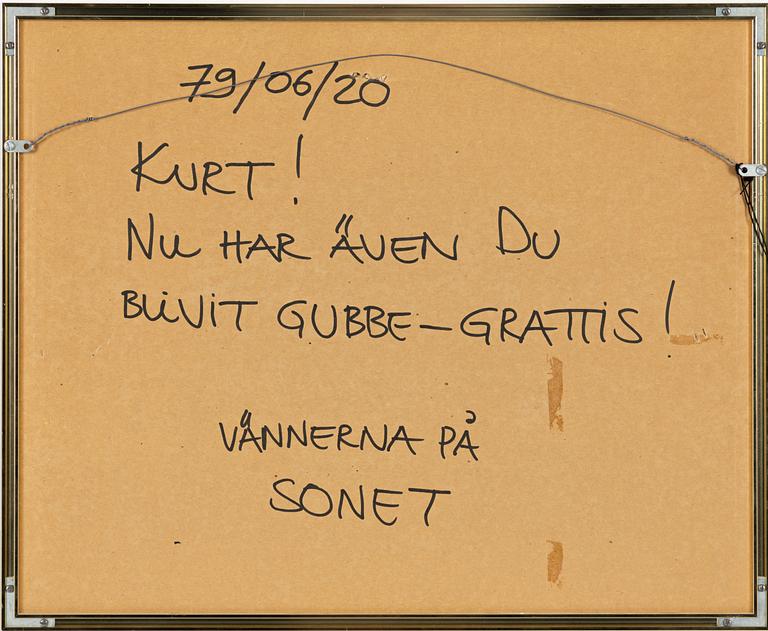 79/06/20
KURT!
NU HAR ÄVEN DU
BLIVIT GUBBE-GRATTIS!
VÄNNERNA PÅ
SONET